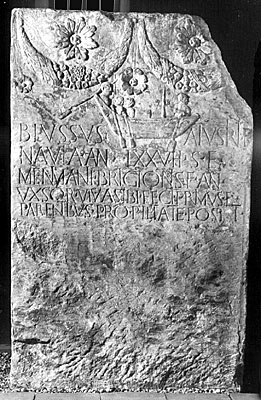 BLVSSVS ATVSIRI
NAVTA AN LXXV H S E
MENIMANI BRIGIONIS F AN
VXSOR VIVA SIBI FECIT PRIMVS F
PARENTIBVS PRO PIETATE POSIT